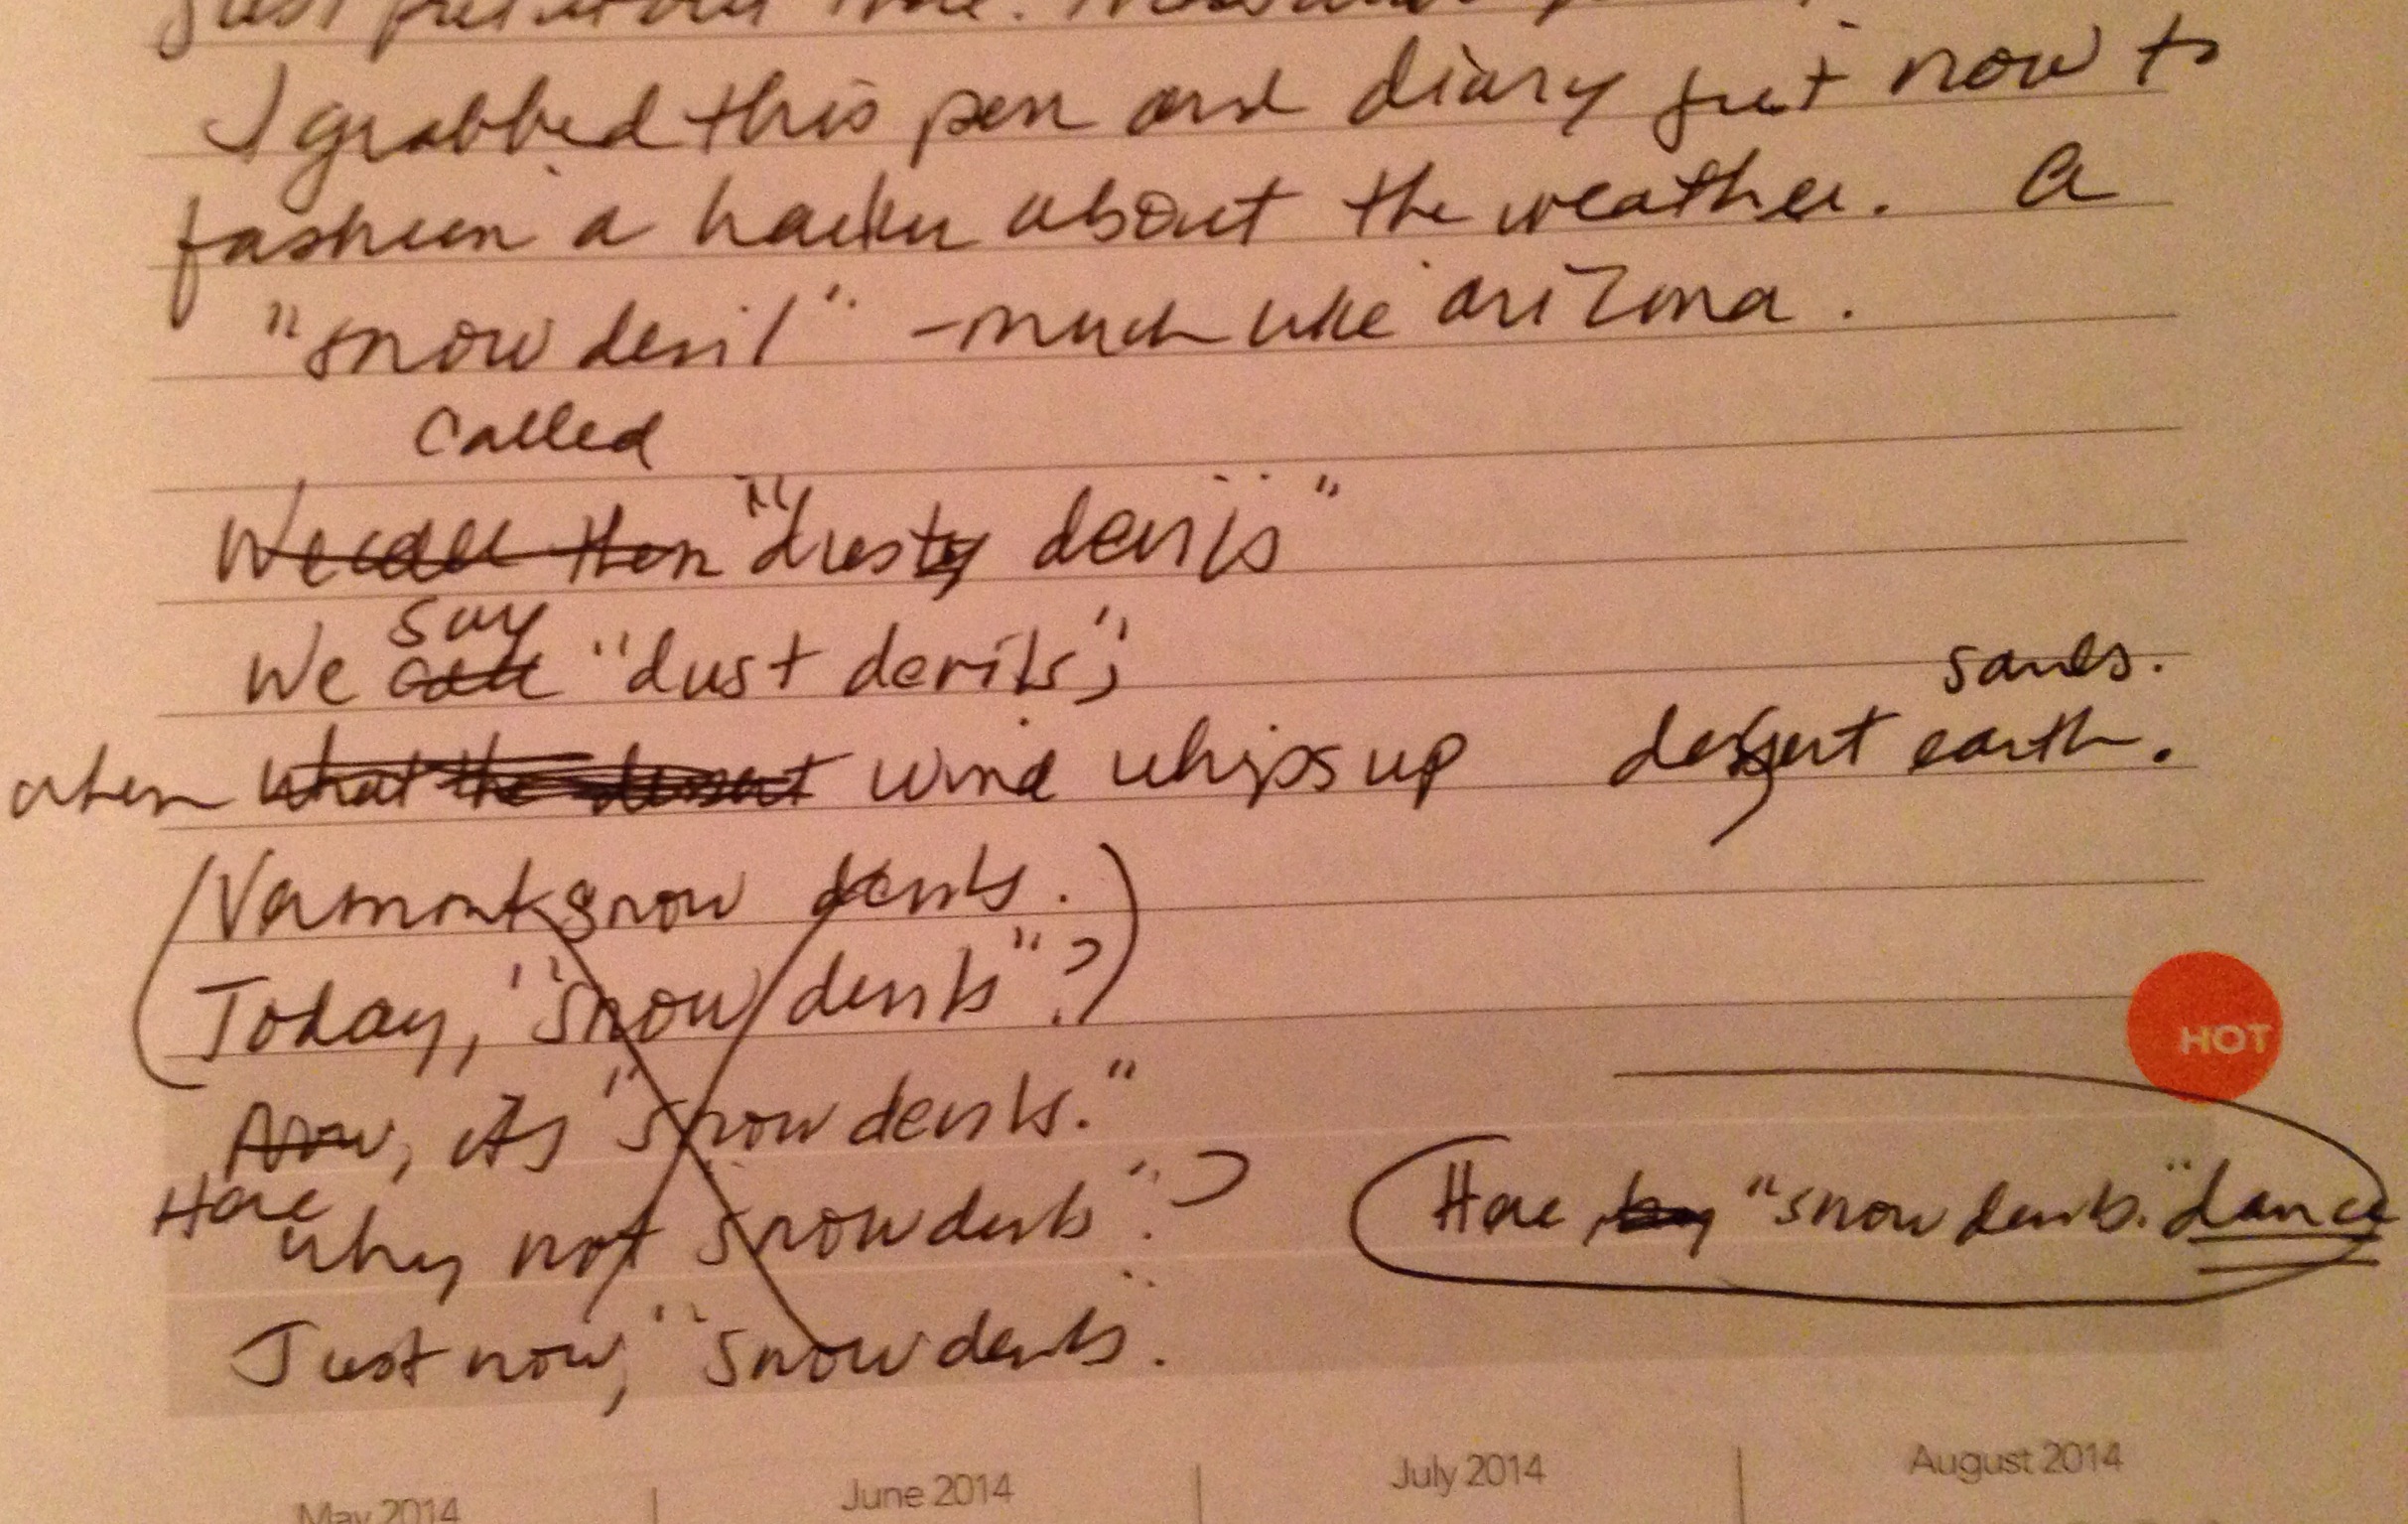 just
I grabbed this pen and diary just now to
fashion a haiku about the weather. A
"snow devil" - much like Arizona.
Called
We call them "dusty devils"
say
We call "dust devils";
sands.
when what the desert wind whips up desert earth.
(Vermont snow devils.
Today, "snow devils"?)
Now, its "snow devils."
Here
why not "snow devils"?
Here, "snow devils." dance
Just now, "snow devils".
HOT
May 2014 | June 2014 | July 2014 | August 2014